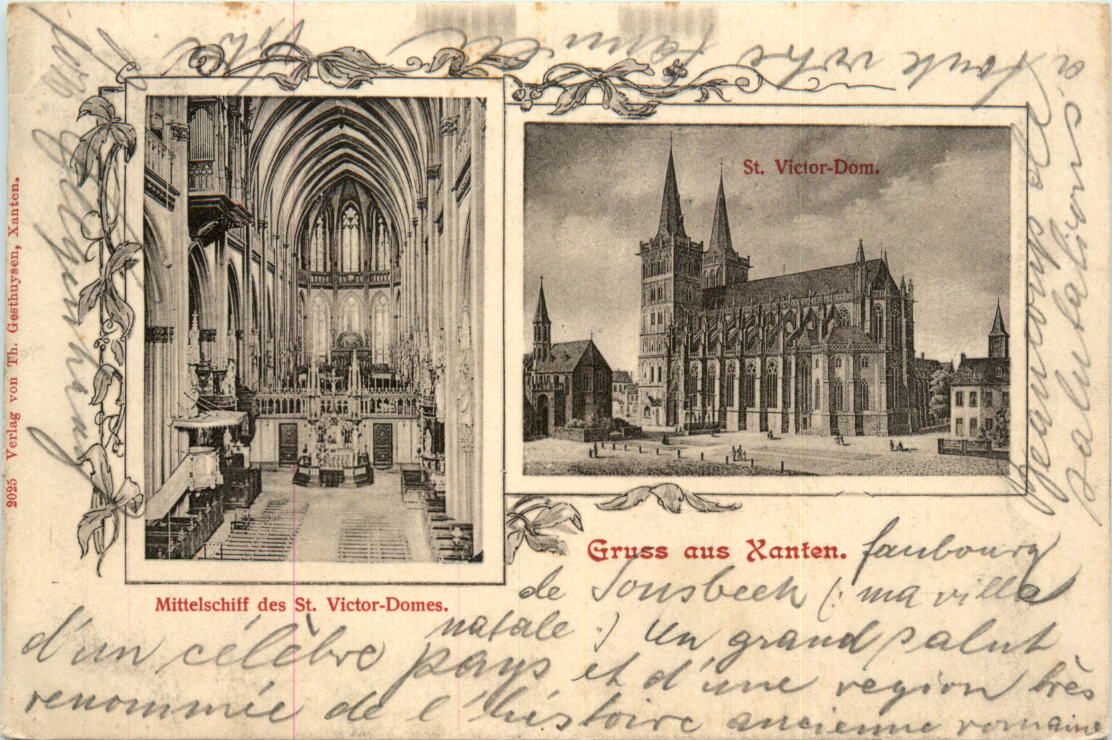 St. Victor-Dom.
Mittelschiff des St. Victor-Domes.
Gruss aus Xanten.
2025 Verlag von Th. Gesthuysen, Xanten.
faubourg
de Sonsbeck (: ma villa
natale :) Un grand salut
d'un célèbre pays et d'une region très
renommée de l'histoire ancienne romaine
beaucoup de
salutations
à toute votre famille